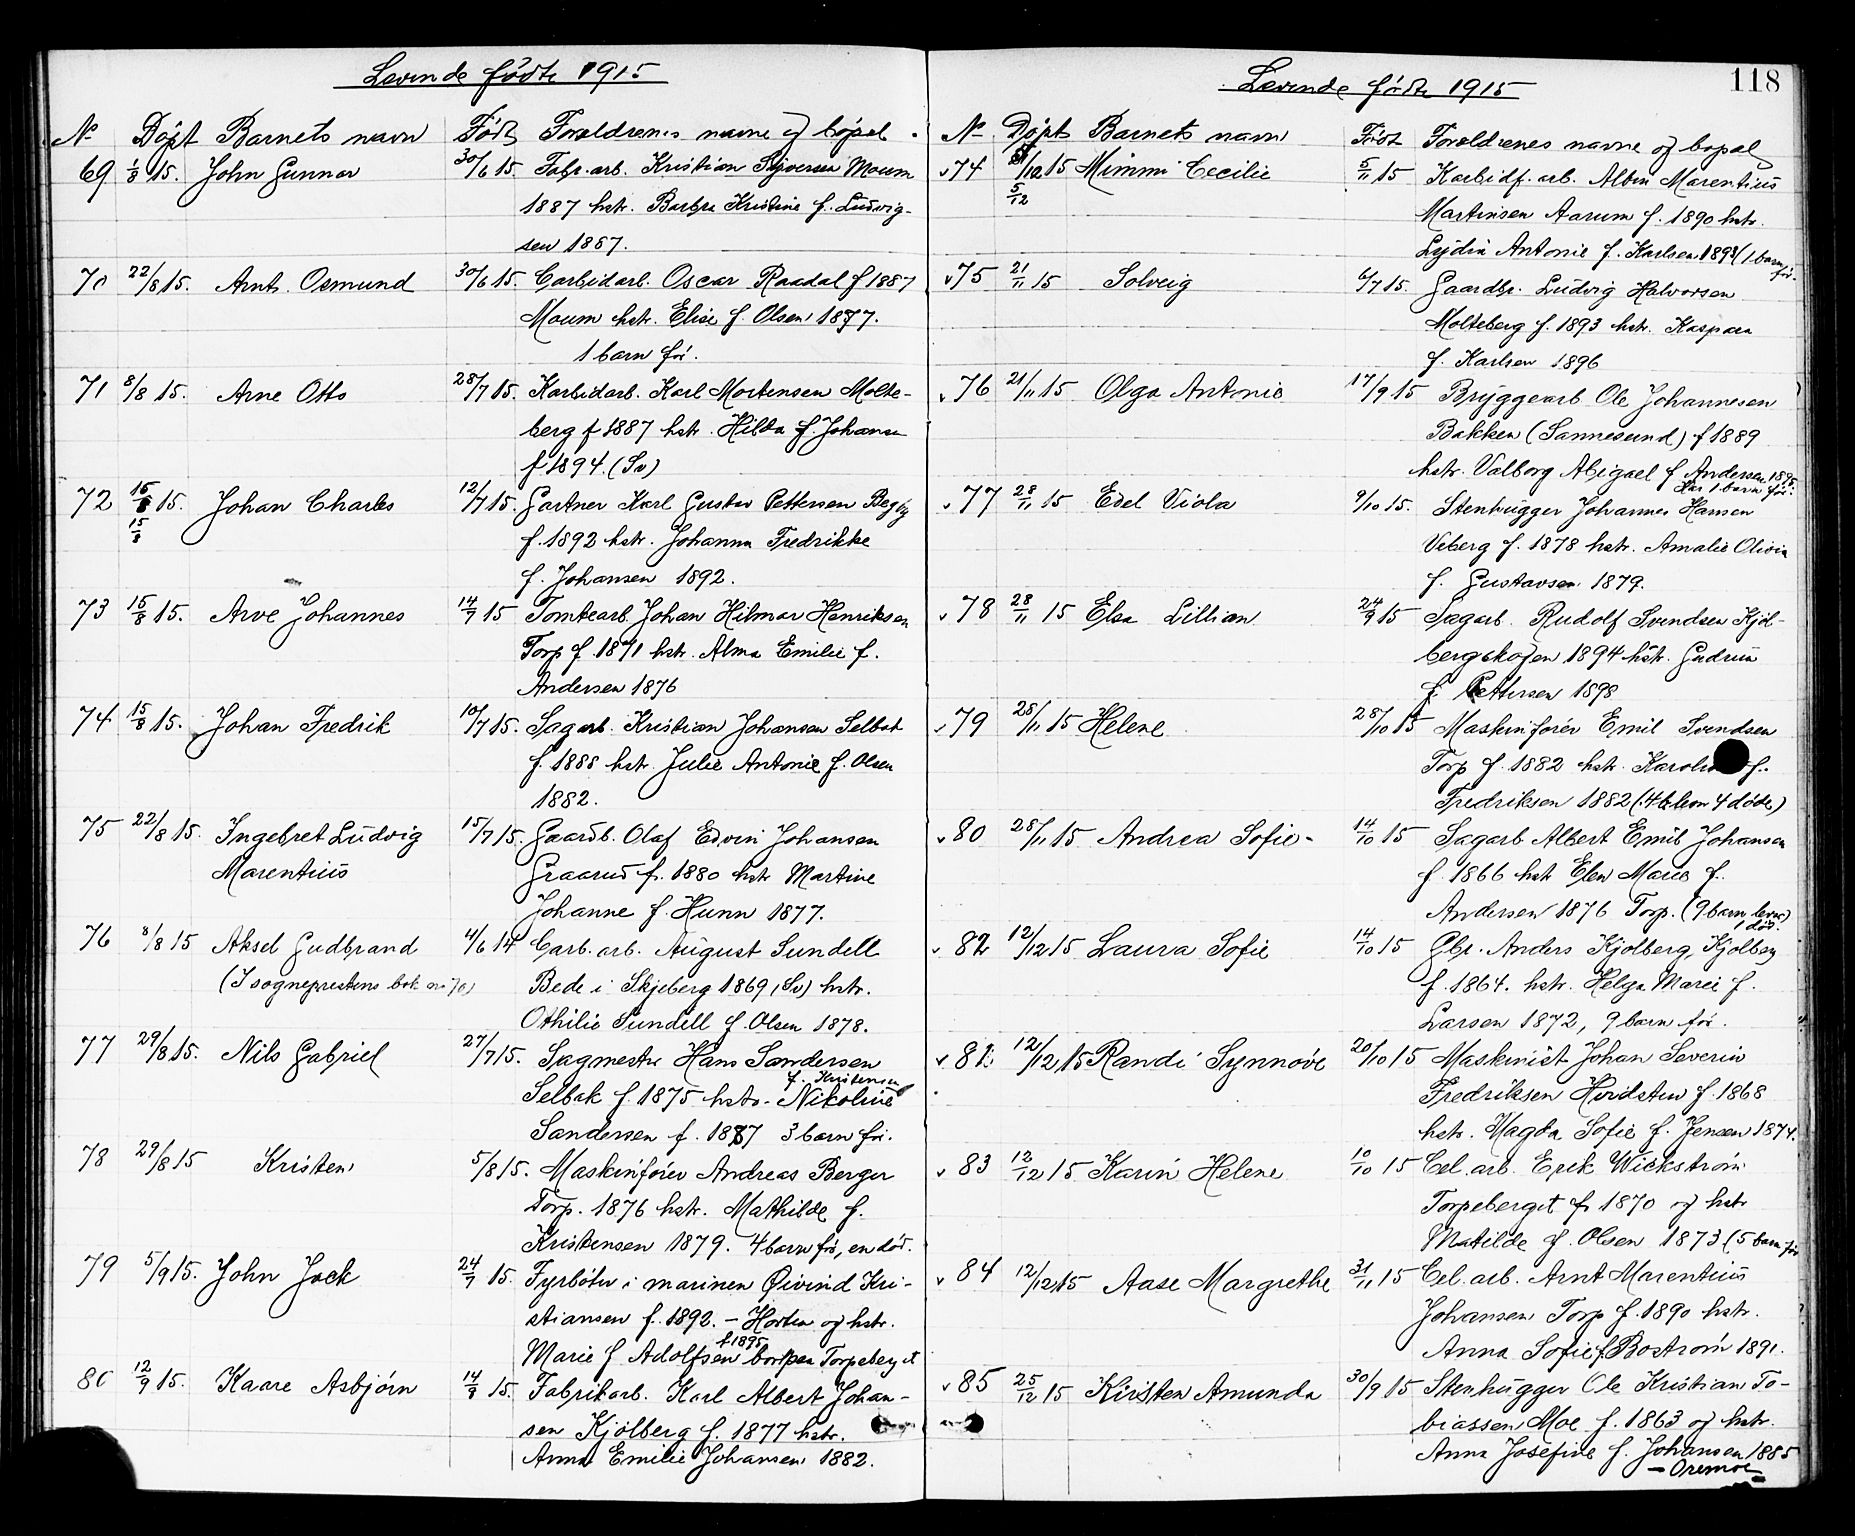 Levende fødte 1915
No Døpt Barnets navn Født Foreldrenes navne og bopel.
69 1/8 15. John Gunnar 30/6 15. Fabr.arb. Kristian Moum
1887 hstr. Barbra Kristine f. Ludvig-
sen 1887.
70 22/8 15. Arnt Osmund 30/6 15. Carbidarb. Oscar Raadal f 1887
Moum hstr. Elise f. Olsen 1877.
1 barn før.
71 8/8 15. Arne Otto 28/7 15. Karbidarb. Karl Mortensen Molte-
berg f 1887 hstr. Hilda f. Johansen
f 1894. (Sv)
72 15/8 15. Johan Charles 12/7 15. Gartner Karl Gustav Pettersen Begby
15/8 f. 1892 hstr. Johanna Fredrikke
f. Johansen 1892.
73 15/8 15. Arve Johannes 14/7 15 Tomtearb. Johan Hilmar Henriksen
Torp f. 1871 hstr. Alma Emilie f.
Andersen 1876
74 15/8 15. Johan Fredrik 10/7 15. Sagarb. Kristian Johansen Selbak
f. 1888 hstr. Julie Antonie f. Olsen
1882.
75 22/8 15. Ingebret Ludvig 15/7 15. Gaardb. Olaf Edvin Johansen
Marentius Graarud f. 1880 hstr Martine
Johanne f. Hunn 1877.
76 8/8 15 Aksel Gudbrand 4/6 14 Carb. arb. August Sundell
(I sogneprestens bok no 70) Bede i Skjeberg 1869 (Sv) hstr.
Othilie Sundell f. Olsen 1878.
77 29/8 15. Nils Gabriel 27/7 15. Sagmester Hans Sandersen
f. Kristensen
Selbak f. 1875 hstr. Nikoline
Sandersen f. 1877 3 barn før.
78 29/8 15 Kristen 5/8 15. Maskinfører Andreas Berger
Torp. 1876 hstr. Mathilde f.
Kristensen 1879. 4 barn før, en død.
79 5/9 15. John Jack 24/7 15. Fyrbøter i marinen Øivind Kri-
stiansen f. 1892. – Horten og hstr.
f 1895
Marie f Adolfsen bor paa Torpeberget
80 12/9 15. Kaare Asbjørn 14/8 15. Fabrikarb. Karl Albert Johan-
sen Kjølberg f. 1877 hstr.
Anna Emilie Johansen 1882.
118
Levende fødte 1915
No Døpt Barnets navn Født Foreldrenes navne og bopel
74 5/12 15 Mimmi Cecilie 5/11 15 Karbidf. arb. Albin Marentius
5/12 Martinsen Aarum f. 1890 hstr.
Lydia Antonie f. Karlsen 1893 (1 barn før.
75 21/11 15 Solveig 6/7 15. Gaardbr. Ludvig Halvorsen
Molteberg f. 1893 hstr. Kaspara
f. Karlsen 1896
76 21/11 15 Olga Antonie 17/9 15 Bryggearb Ole Johannesen
Bakken (Sannesund) f 1889
hstr. Valborg Abigael f Andersen 1895
Har 1 barn før.
77 28/11 15 Edel Viola 9/10 15. Stenhugger Johannes Hansen
Veberg f. 1878 hstr. Amalie Olivia
f. Gustavsen 1879.
78 28/11 15 Elsa Lillian 24/9 15 Sagarb. Rudolf Svendsen Kjøl-
bergskogen 1894 hstr. Gudrun
f. Pettersen 1898
79 28/11 15 Helene 28/10 15 Maskinfører Emil Svendsen
Torp f. 1882 hstr. f.
Fredriksen 1882 (4 døde)
80 28/11 15 Andrea Sofie- 14/10 15 Sagarb Albert Emil Johansen
f. 1866 hstr Elen Marie f.
Andersen 1876 Torp. (9 barn lever)
1 død.
82 12/12 15 Laura Sofie 14/10 15 Gbr. Anders Kjølberg, Kjølberg
f. 1864. hstr. Helga Marie f.
Larsen 1872, 9 barn før.
81. 12/12 15 Randi Synnøve 20/10 15 Maskinist Johan Severin
Fredriksen Hvidsten f. 1868
hstr. Magda Sofie f. Jensen 1874.
83 12/12 15 Karin Helene 10/10 15 Cel. arb. Erik Wickstrøm
Torpeberget f. 1870 og hstr
Matilde f. Olsen 1873 (5 barn før
84 12/12 15 Aase Margrethe 31/11 15 Cel. arb. Arnt Marentius
Johansen Torp f. 1890 hstr.
Anna Sofie f Bostrøm 1891.
85 25/12 15 Kirsten Amunda 30/9 15 Stenhugger Ole Kristian To-
biassen Moe f. 1863 og hstr.
Anna Josefine f. Johansen 1885
– Oremoe